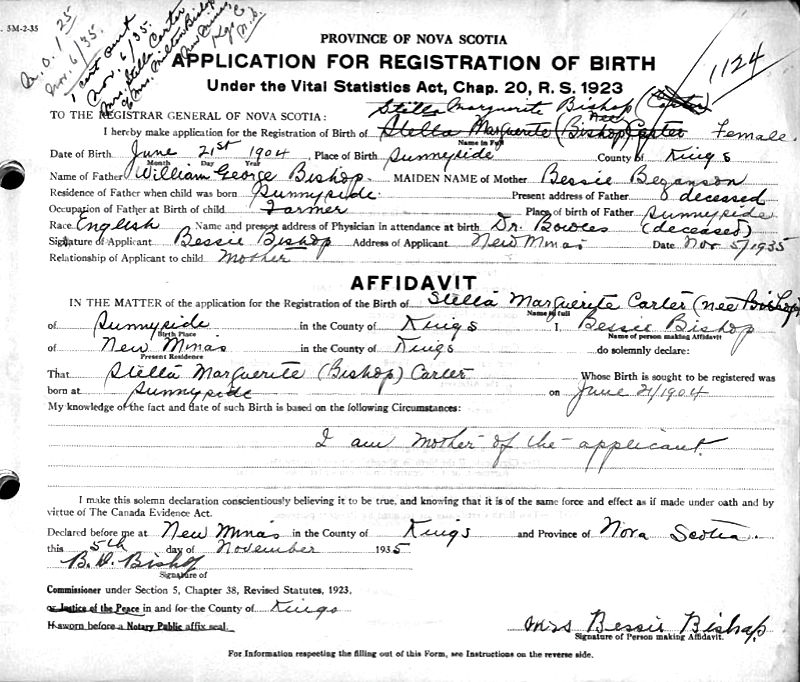 5M-2-35
M.O. 1.25
Nov. 6/35.
1 cert out
Nov. 6/35.
Mrs. Stella Carter
℅ Mrs. Milton Bishop
New Minas,
Kgs Co
N.S.
1124
PROVINCE OF NOVA SCOTIA
APPLICATION FOR REGISTRATION OF BIRTH
Under the Vital Statistics Act, Chap. 20, R. S. 1923
Stella Marguerite Bishop (Carter)
TO THE REGISTRAR GENERAL OF NOVA SCOTIA:
nee
I hereby make application for the Registration of Birth of Stella Marguerite (Bishop) Carter Female.
Name in Full
Date of Birth June 21st 1904, Place of Birth Sunnyside County of Kings
Month Day Year
Name of Father William George Bishop. MAIDEN NAME of Mother Bessie Beganson
Residence of Father when child was born Sunnyside. Present address of Father deceased
Occupation of Father at Birth of child Farmer Place of birth of Father Sunnyside
Race English Name and present address of Physician in attendance at birth Dr. Bowles (deceased)
Signature of Applicant Bessie Bishop Address of Applicant New Minas Date Nov 5/1935
Relationship of Applicant to child Mother
AFFIDAVIT
IN THE MATTER of the application for the Registration of the Birth of Stella Marguerite Carter (nee Bishop)
Name in full
of Sunnyside in the County of Kings I, Bessie Bishop
Birth Place Name of person making Affidavit
of New Minas in the County of Kings do solemnly declare:
Present Residence
That Stella Marguerite (Bishop) Carter Whose Birth is sought to be registered was
born at Sunnyside on June 21/1904
My knowledge of the fact and date of such Birth is based on the following Circumstances:
I am mother of the applicant.
I make this solemn declaration conscientiously believing it to be true, and knowing that it is of the same force and effect as if made under oath and by
virtue of The Canada Evidence Act.
Declared before me at New Minas in the County of Kings and Province of Nova Scotia.
this 5th day of November 1935
B. D. Bishop
Signature of
Commissioner under Section 5, Chapter 38, Revised Statutes, 1923,
or Justice of the Peace in and for the County of Kings
If sworn before a Notary Public affix seal.
Mrs Bessie Bishop.
Signature of Person making Affidavit.
For Information respecting the filling out of this Form, see Instructions on the reverse side.